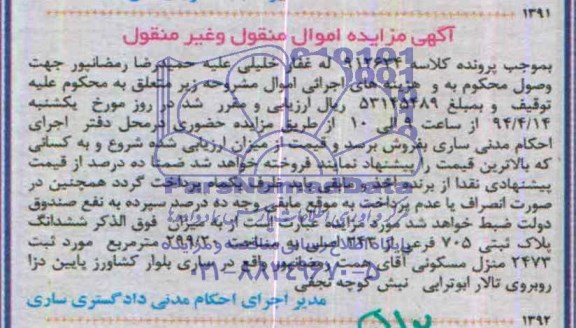 ۱۳۹۱
آگهی مزایده اموال منقول وغیر منقول
بموجب پرونده کلاسه ۹۱۲۶۳۴ له غفار خلیلی علیه حمیدرضا رمضانپور جهت
وصول محکوم به و هزینه های اجرائی اموال مشروحه زیر متعلق به محکوم علیه
توقیف و بمبلغ ۵۳۱۴۵۴۸۹ ریال ارزیابی و مقرر شد در روز مورخ یکشنبه
۹۴/۴/۱۴ از ساعت الی ۱۰ از طریق مزایده حضوری درمحل دفتر اجرای
احکام مدنی ساری بفروش برسد و قیمت از میزان ارزیابی شده شروع و به کسانی
که بالاترین قیمت را پیشنهاد نمایند فروخته خواهد شد ضمنا ده درصد از قیمت
پیشنهادی نقدا از برنده اخذ و مابقی باید ظرف یکماه پرداخت گردد همچنین در
صورت انصراف یا عدم پرداخت به موقع مابقی وجه ده درصد سپرده به نفع صندوق
دولت ضبط خواهد شد مورد مزایده عبارت است از به میزان فوق الذکر ششدانگ
پلاک ثبتی ۷۰۵ فرعی از اصلی به مساحت مترمربع مورد ثبت
۲۴۷۳ منزل مسکونی آقای همت رمضانپور واقع در ساری بلوار کشاورز پایین دزا
روبروی تالار ابوترابی نبش کوچه نجفی
مدیر اجرای احکام مدنی دادگستری ساری
۱۳۹۲
ParsNamadData
۰۲۱-۸۸۳۴۹۶۷۰-۵